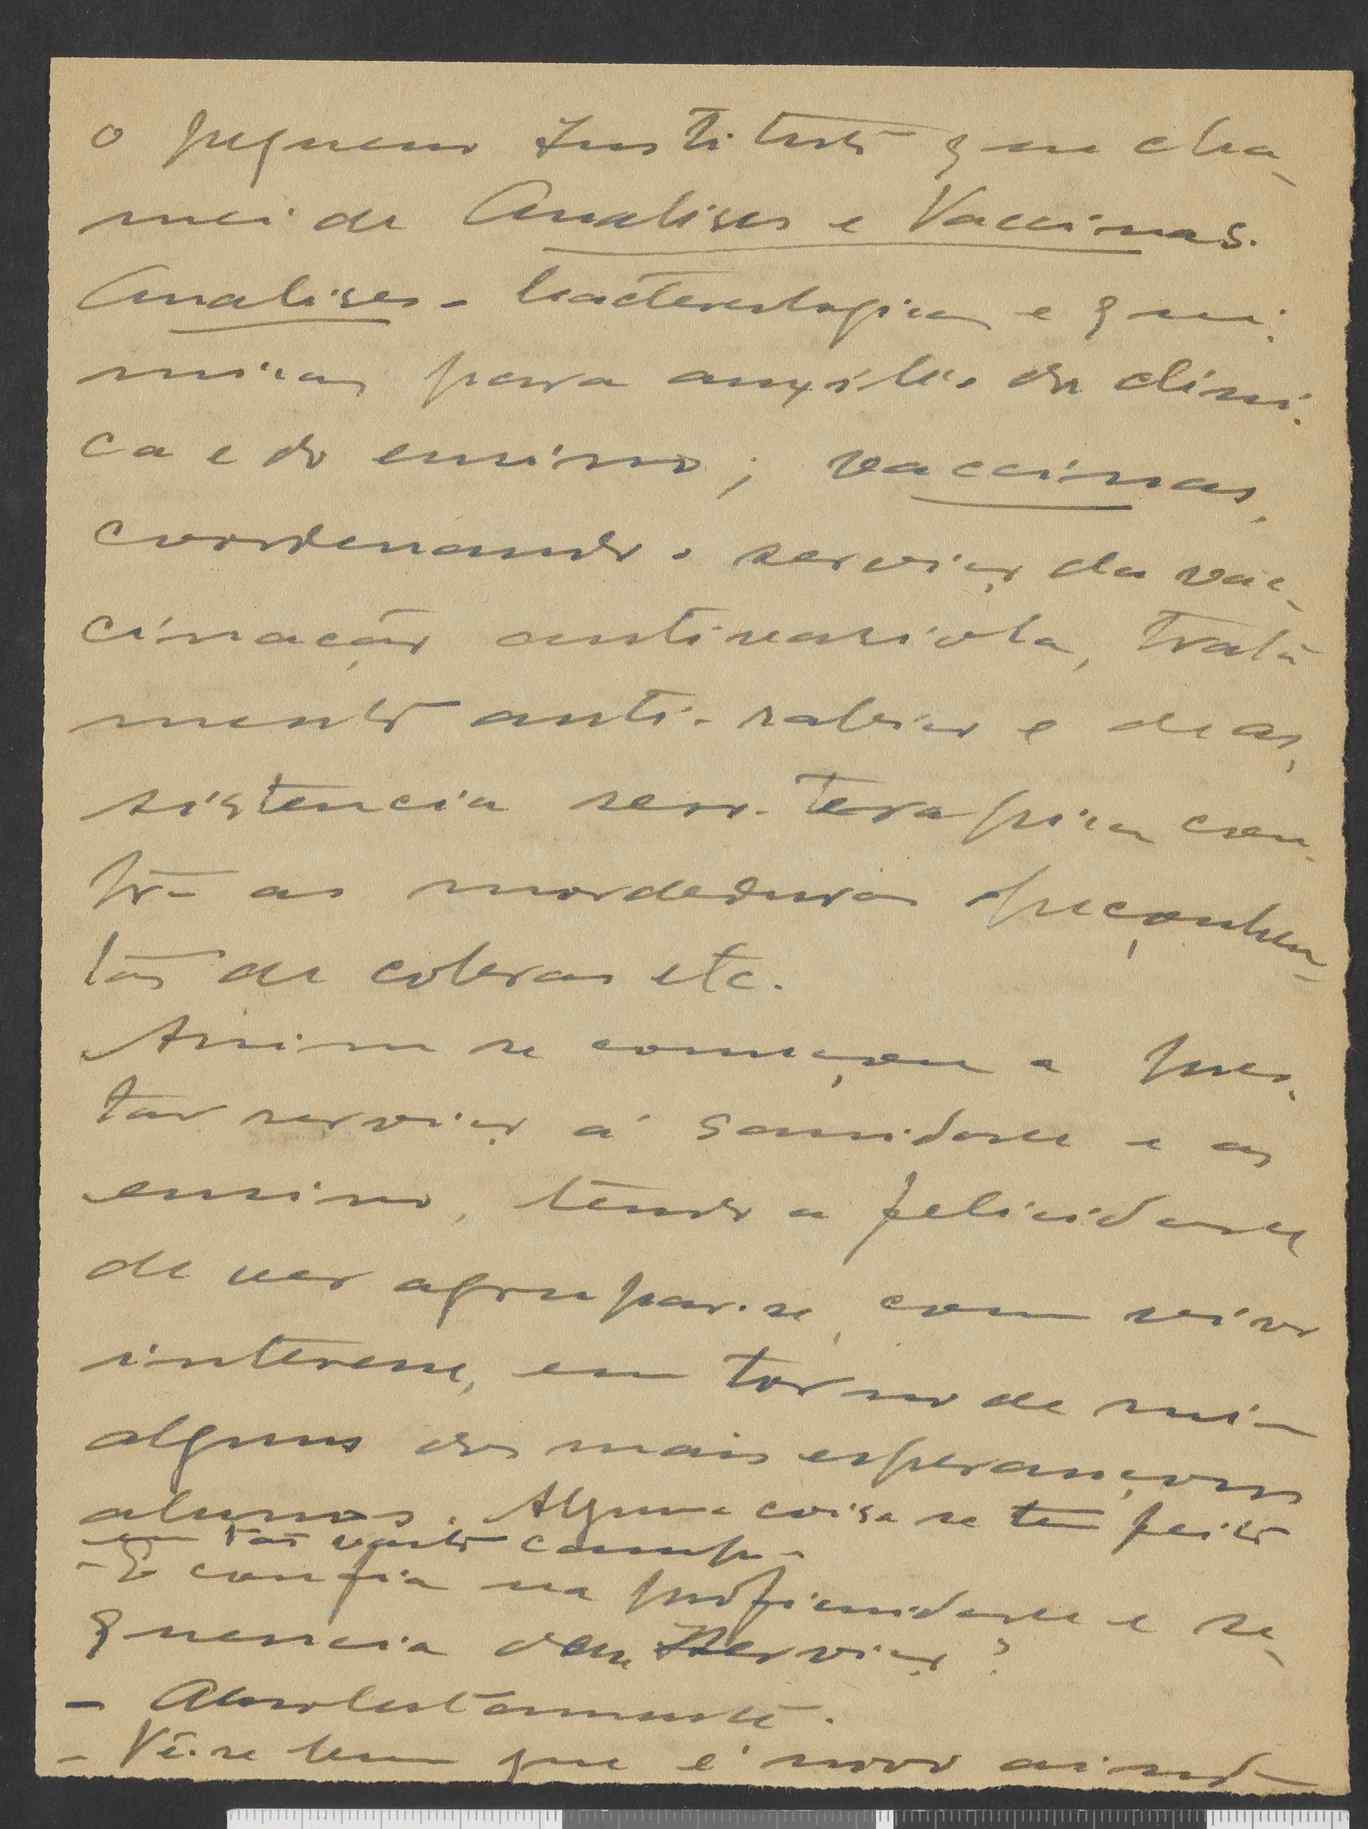 o pequeno Instituto que cha-
mei de Analises e Vaccinas.
Analises - bacteriologicas e qui-
micas para auxilio da clini-
ca e do ensino; vaccinas,
coordenando o serviço da vac-
cinação antivariola, trata-
mento anti-rabico e de as-
sistencia sero-terapica con-
tra as mordeduras peçonhen-
tas de cobras etc.
Assim se começou a pres-
tar serviço á sanidade e ao
ensino, tendo a felicidade
de ver agrupar-se, com vivo
interesse, em torno de mim
alguns dos mais esperançosos
alunos. Alguma coisa se tem feito
em tão vasto campo.
- E confia na proficuidade e se-
quencia do seu Serviço?
- Absolutamente.
- Vê-se bem que é novo ainda